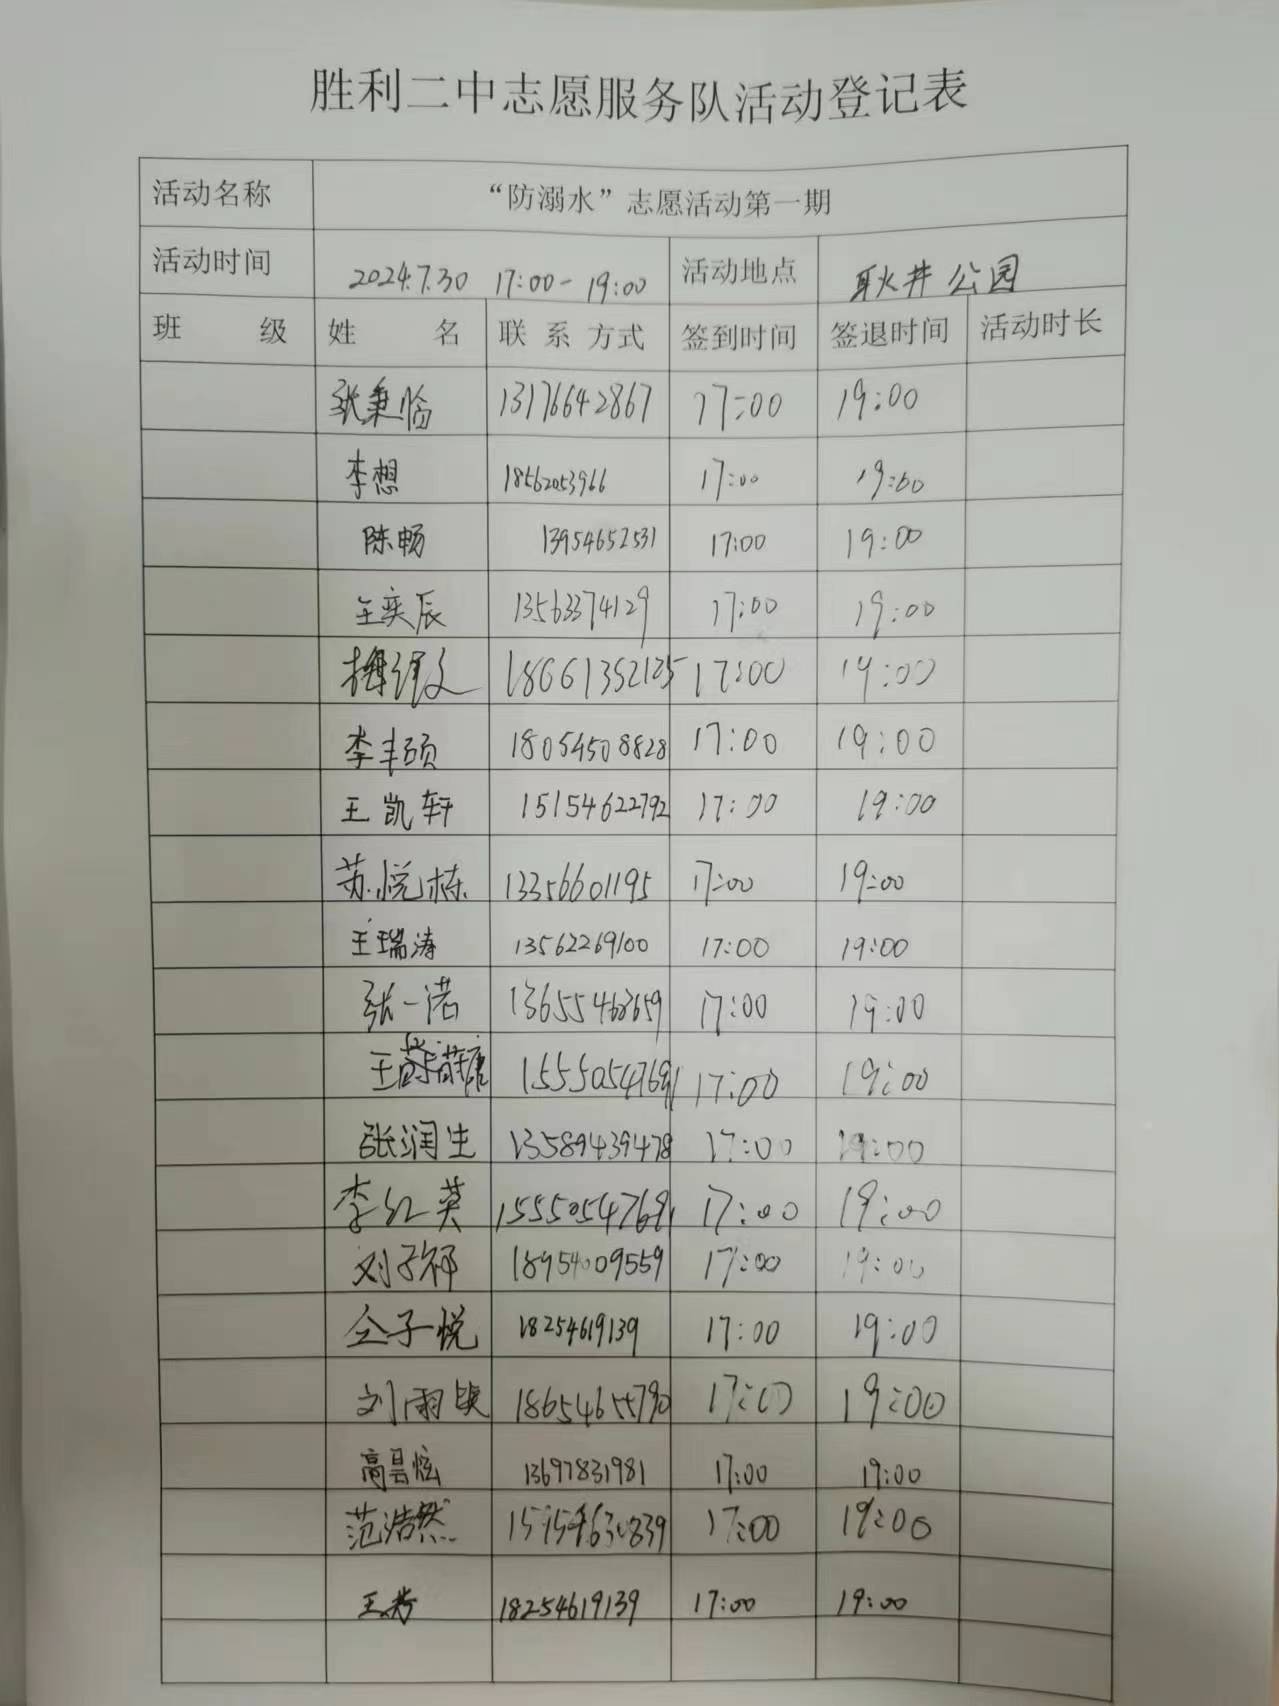 胜利二中志愿服务队活动登记表
活动名称 “防溺水”志愿活动第一期
活动时间 2024.7.30 17:00-19:00 活动地点 耿井公园
班 级 姓 名 联系方式 签到时间 签退时间 活动时长
张秉临 13176642867 17:00 19:00
李想 18562053966 17:00 19:00
陈畅 13954652531 17:00 19:00
王奕辰 13563374129 17:00 19:00
18661352125 17:00 19:00
李丰硕 18054508828 17:00 19:00
王凯轩 15154622792 17:00 19:00
苏悦栋 13356601195 17:00 19:00
王瑞涛 13562269100 17:00 19:00
张一诺 13655463659 17:00 19:00
15550547691 17:00 19:00
张润生 13589439478 17:00 19:00
李红英 15550547691 17:00 19:00
刘子祁 18954009559 17:00 19:00
仝子悦 18254619139 17:00 19:00
17:00 19:00
高昙炫 13697831981 17:00 19:00
范浩然 17:00 19:00
18254619139 17:00 19:00